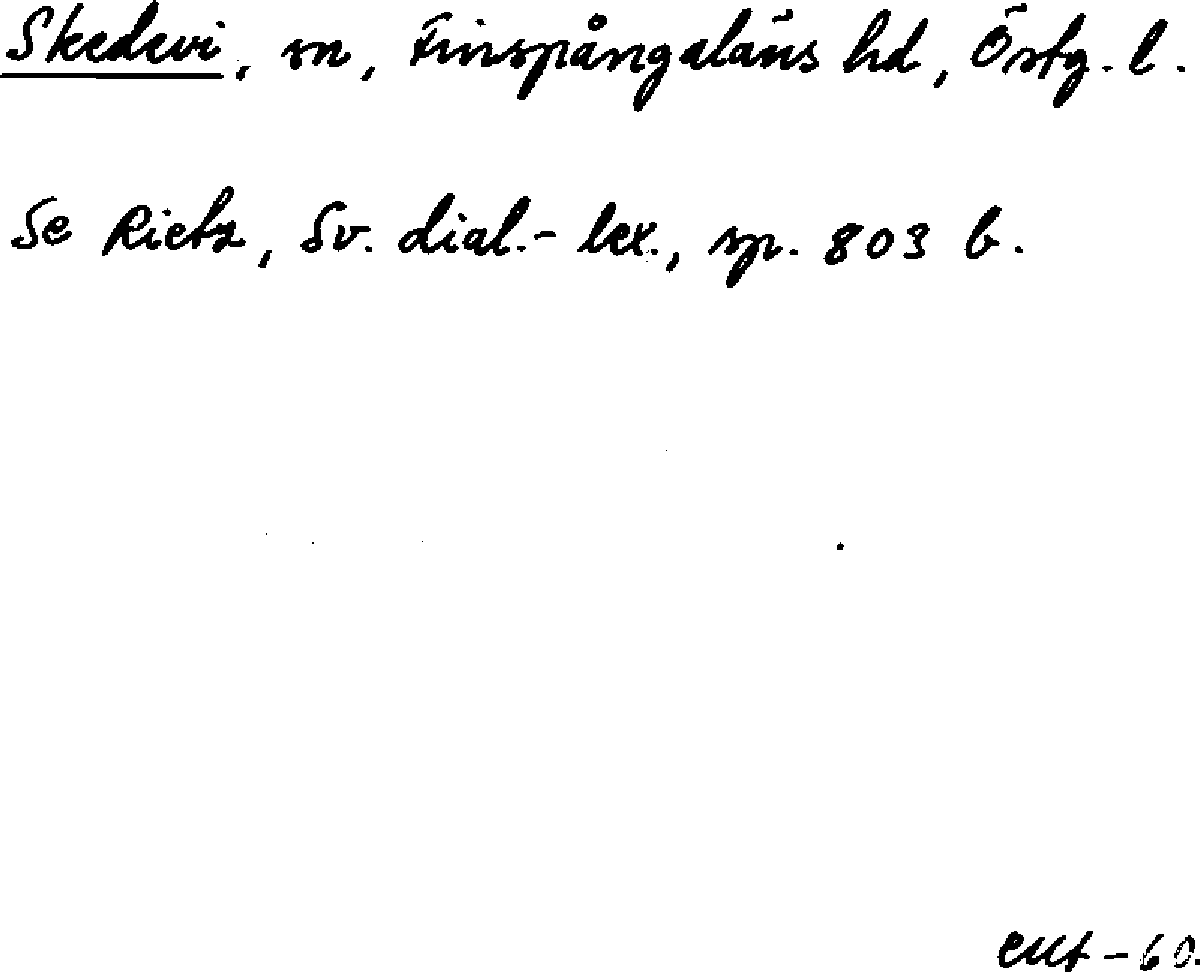 Skedevi, sn, Finspångaläns hd, Östg. l.
Se Rietz, Sv. dial.-lex., sp. 803 b.
-60.